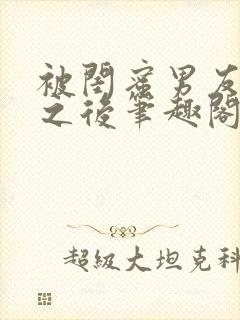 被閨蜜男友
之後筆趣閣
超級大坦克科